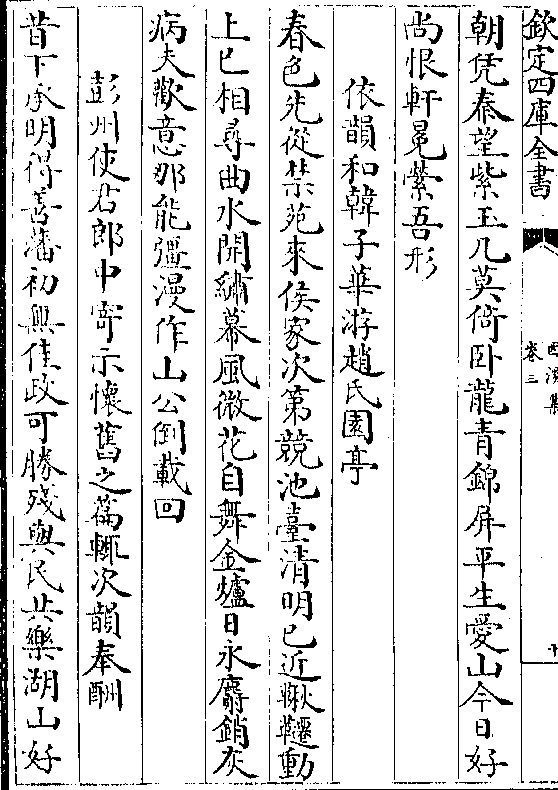 欽定四庫全書
西溪集
卷三
十
朝凭秦望紫玉几莫倚卧龍青錦屏平生愛山今日好
尚恨軒冕縈吾形
依韻和韓子華游趙氏園亭
春色先從禁苑來侯家次第競池臺清明已近鞦韆動
上巳相尋曲水開繡幕風微花自舞金爐日永麝銷灰
病夫歡意那能彊漫作山公倒載回
彭州使君郎中寄示懷舊之篇輒次韻奉酬
昔下承明得善藩初無佳政可勝殘與民共樂湖山好